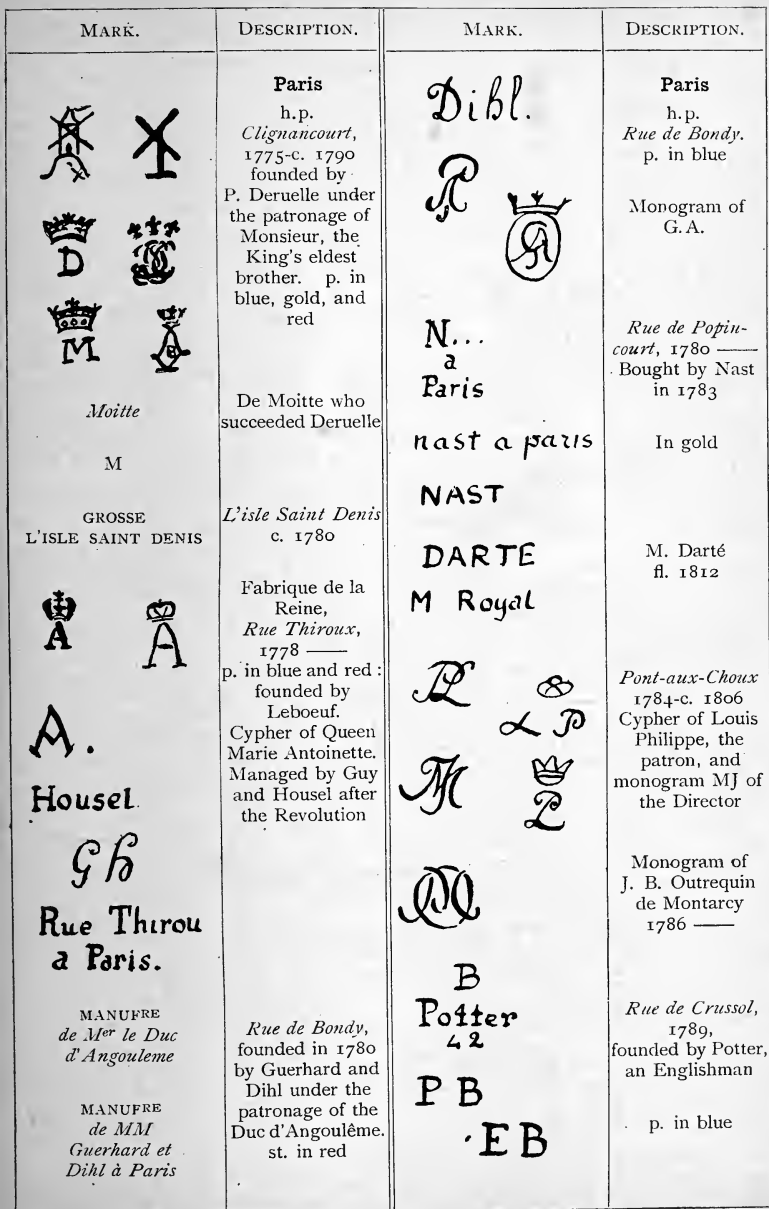 MARK.
DESCRIPTION.
Paris
h.p.
Clignancourt,
1775-c. 1790
founded by
P. Deruelle under
the patronage of
Monsieur, the
King's eldest
brother. p. in
blue, gold, and
red
D
M
Moitte
De Moitte who
succeeded Deruelle
M
GROSSE
L'ISLE SAINT DENIS
L'isle Saint Denis
c. 1780
A
A
A.
Housel
Gh
Rue Thirou
a Paris.
Fabrique de la
Reine,
Rue Thiroux,
1778 ——
p. in blue and red :
founded by
Leboeuf.
Cypher of Queen
Marie Antoinette.
Managed by Guy
and Housel after
the Revolution
MANUFRE
de Mer le Duc
d'Angouleme
MANUFRE
de MM
Guerhard et
Dihl à Paris
Rue de Bondy,
founded in 1780
by Guerhard and
Dihl under the
patronage of the
Duc d'Angoulême.
st. in red
MARK.
DESCRIPTION.
Dihl.
Paris
h.p.
Rue de Bondy.
p. in blue
Monogram of
G.A.
N...
a
Paris
Rue de Popin-
court, 1780 ——
Bought by Nast
in 1783
nast a paris
In gold
NAST
DARTE
M Royal
M. Darté
fl. 1812
PL
LP
MJ
P
Pont-aux-Choux
1784-c. 1806
Cypher of Louis
Philippe, the
patron, and
monogram MJ of
the Director
Monogram of
J. B. Outrequin
de Montarcy
1786 ——
B
Potter
42
Rue de Crussol,
1789,
founded by Potter,
an Englishman
P B
· E B
p. in blue